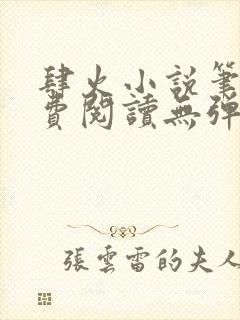 肆火小說筆
費閱讀無彈
張雲雷的夫人